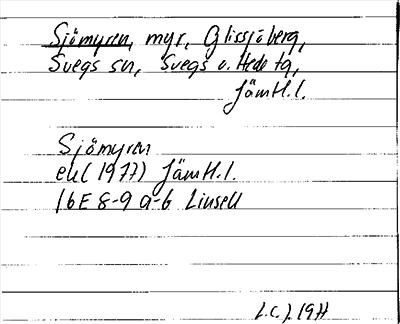 Sjömyren, myr, Glissjöberg,
Svegs sn, Svegs o. Hede tg,
Jämtl.l.
Sjömyren
ekl (1977) Jämtl.l.
16E 8-9 a-b Linsell
L.C.J. 1977